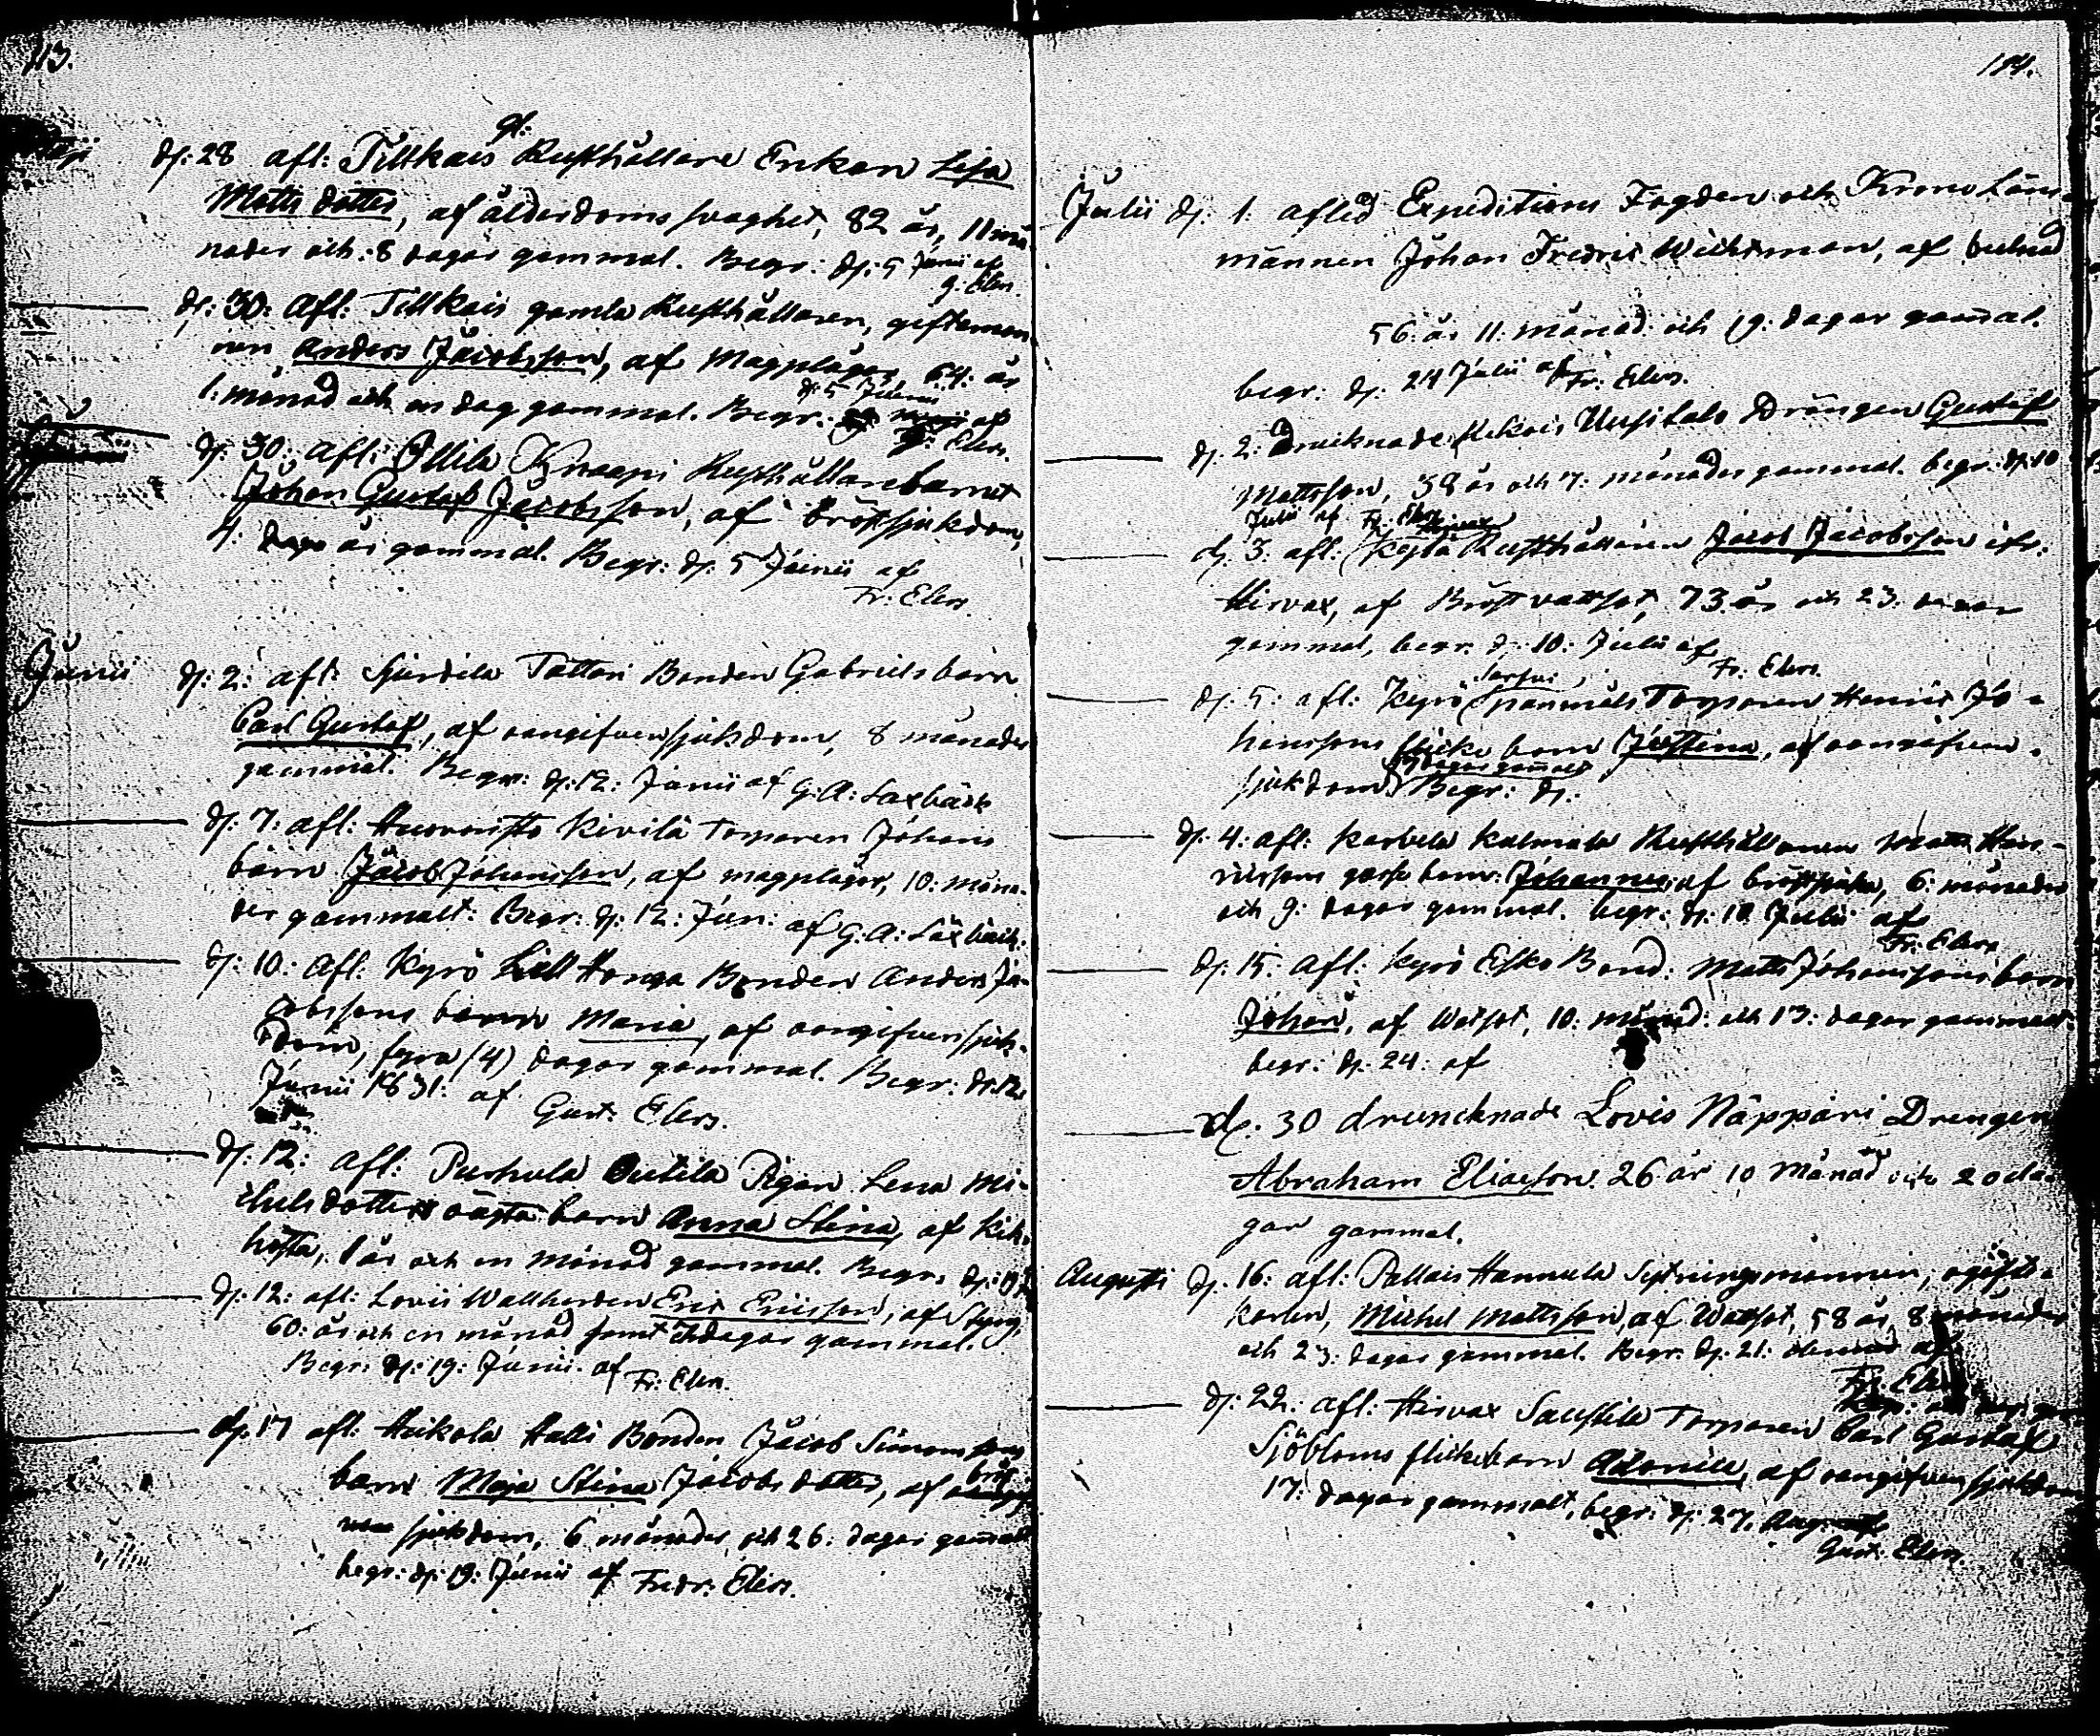 113.
gl:
Maji dj: 28 afl: Tillkais Rusthållare Enkan Lisa
Matts dotter, af ålderdoms svaghet, 82 år, 11 må-
nader och 8 dagar gammal. Begr: dj: 5 Junii af
G: Elers.
dj: 30: Afl: Tillkais gamla Rusthållaren, giftaman-
nen Anders Jacobsson, af Magplågor, 64: år
dj: 5 Junii
1: månad och en dag gammal. Begr: af
Elers.
dj: 30: Afl: Ollila Knaapi Rusthållarebarnet
Johan Gustaf Jacobsson, af bröstsjukdom,
4: år gammal. Begr: dj: 5 Junii af
Fr: Elers.
Junii dj: 2: afl: Sjerdila Tattari Bonden Gabriels barn
Carl Gustaf, af oangifven sjukdom, 8 månader
gammal. Begr: dj: 12: Junii af G: A: Laxbäck
dj: 7: afl: Kivilä Torparen Johans
barn Jacob Johansson, af magplågor, 10: måna-
der gammalt: Begr: dj: 12: Jun: af G: A: Laxbäck.
dj: 10: Afl: Kyrö Lill Honga Bonden Anders Ja-
cobssons barn Maria, af oangifven sjuk-
dom, fyra (4) dagar gammal. Begr: dj: 12.
Junii 1831: af Gust. Elers.
dj: 12: Afl: Purhula Outila Pigan Lena Mi-
chelsdotters oägta barn Anna Stina, af Kik-
hosta, 1 år och en månad gammal. Begr: dj: 19
dj: 12: afl: Lovis Wallherden Eric Ericsson, af Styng,
60: år och en månad samt dagar gammal.
Begr: dj: 19: Junii af Fr: Elers.
dj: 17 afl: Heikola Halli Bonden Jacob Simonssons
bröst
barn Maja Stina Jacobs dotter, af
sjukdom, 6 månader och 26: dagar gamal
begr: dj: 19: Junii af Fredr: Elers.
114.
Julii dj: 1: afled Expeditions Fogden och Krono Läns-
männen Johan Fredric Wichtman, af
56: år 11: månad: och 19: dagar gamal.
begr: dj: 24 Julii af Fr: Elers.
dj: 2: Drucknade Uusitalo Drängen Gustaf
Mattsson, 38 år och 7: månader gammal. begr: dj: 10
Julii af Fr: Elers
dj. 3. afl: Rusthållaren Jacob Jacobsson ifr:
Hirvax, af Bröst vattsot, 73 år och 23. dagar
gammal, begr. dj: 10: Julii af
Fr: Elers.
dj. 5: afl: Kyrö Torparen Henric Jo-
hanssons flicke barn Justina, af oangifven
dagar gamalt
sjukdom Begr: dj:
dj. 4: afl: Karvela Kalmala Rusthållaren Hen-
ricssons gosse barn: Johannes af bröstsjuka, 6: månader
och 9: dagar gammal. begr: dj: 10 Julii af
Fr: Elers
dj. 15: Afl: Kyrö Esko Bond: Matts Johanssons barn
Johan, af Watsot, 10: månad: och 13: dagar gammalt.
begr: dj. 24: af
dj. 30 druncknade Lovis Näppäri Drengen
Abraham Eliaeson. 26 år 10 månad och 20 da-
gar gammal.
Augusti dj. 16: afl: Pallais Hannula Sytningsmannen, ogift
karlen, Michel Mattsson, af Wattsot, 58 år, 8 månader
och 23: dagar gammal. Begr. dj. 21: af
Fr: Elers
dj: 22: afl: Hirvax Torparen Carl Gustaf
Sjöbloms flickebarn, af oangifven sjukdom
17: dagar gammalt, begr: dj: 27. Aug: af
Gust: Elers.